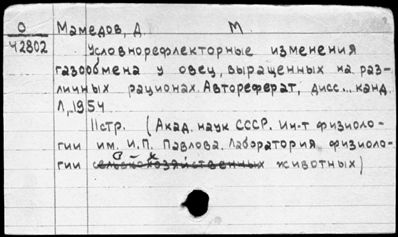 О Мамедов, Д. М
Ч2802 Условнорефлекторные изменения
газообмена у овец, выращенных на раз-
личных рационах. Автореферат, дисс... канд.
Л., 1954
11стр. (Акад. наук СССР. Ин-т физиоло-
гии им. И.П. Павлова. Лаборатория физиоло-
гии с-х животных)